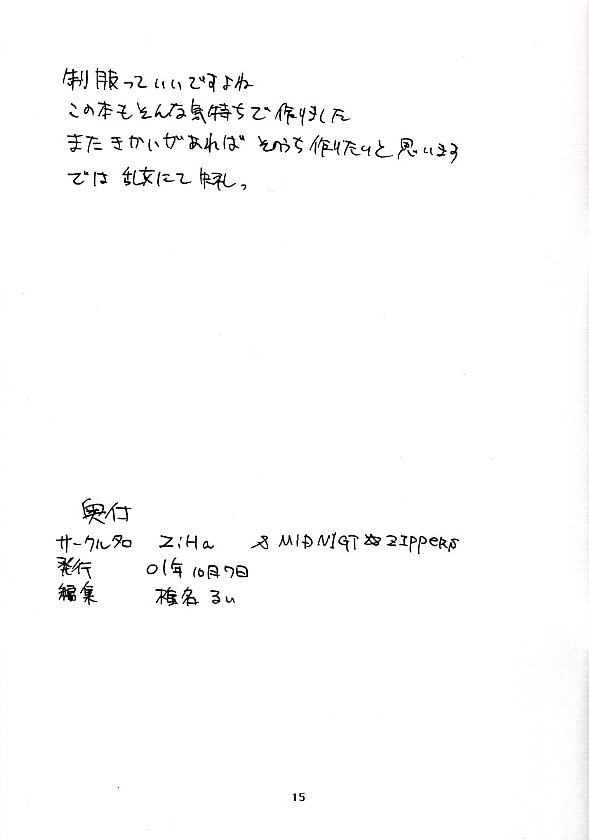 制服っていいですよね
この本もそんな気持ちで作りました
またきかいがあれば そのうち作りたいと思います
では 乱文にて 失礼。
奥付
サークル名 ZiHa & MIDNIGT☆ZIPPERS
発行 01年10月7日
編集 椎名るい
15